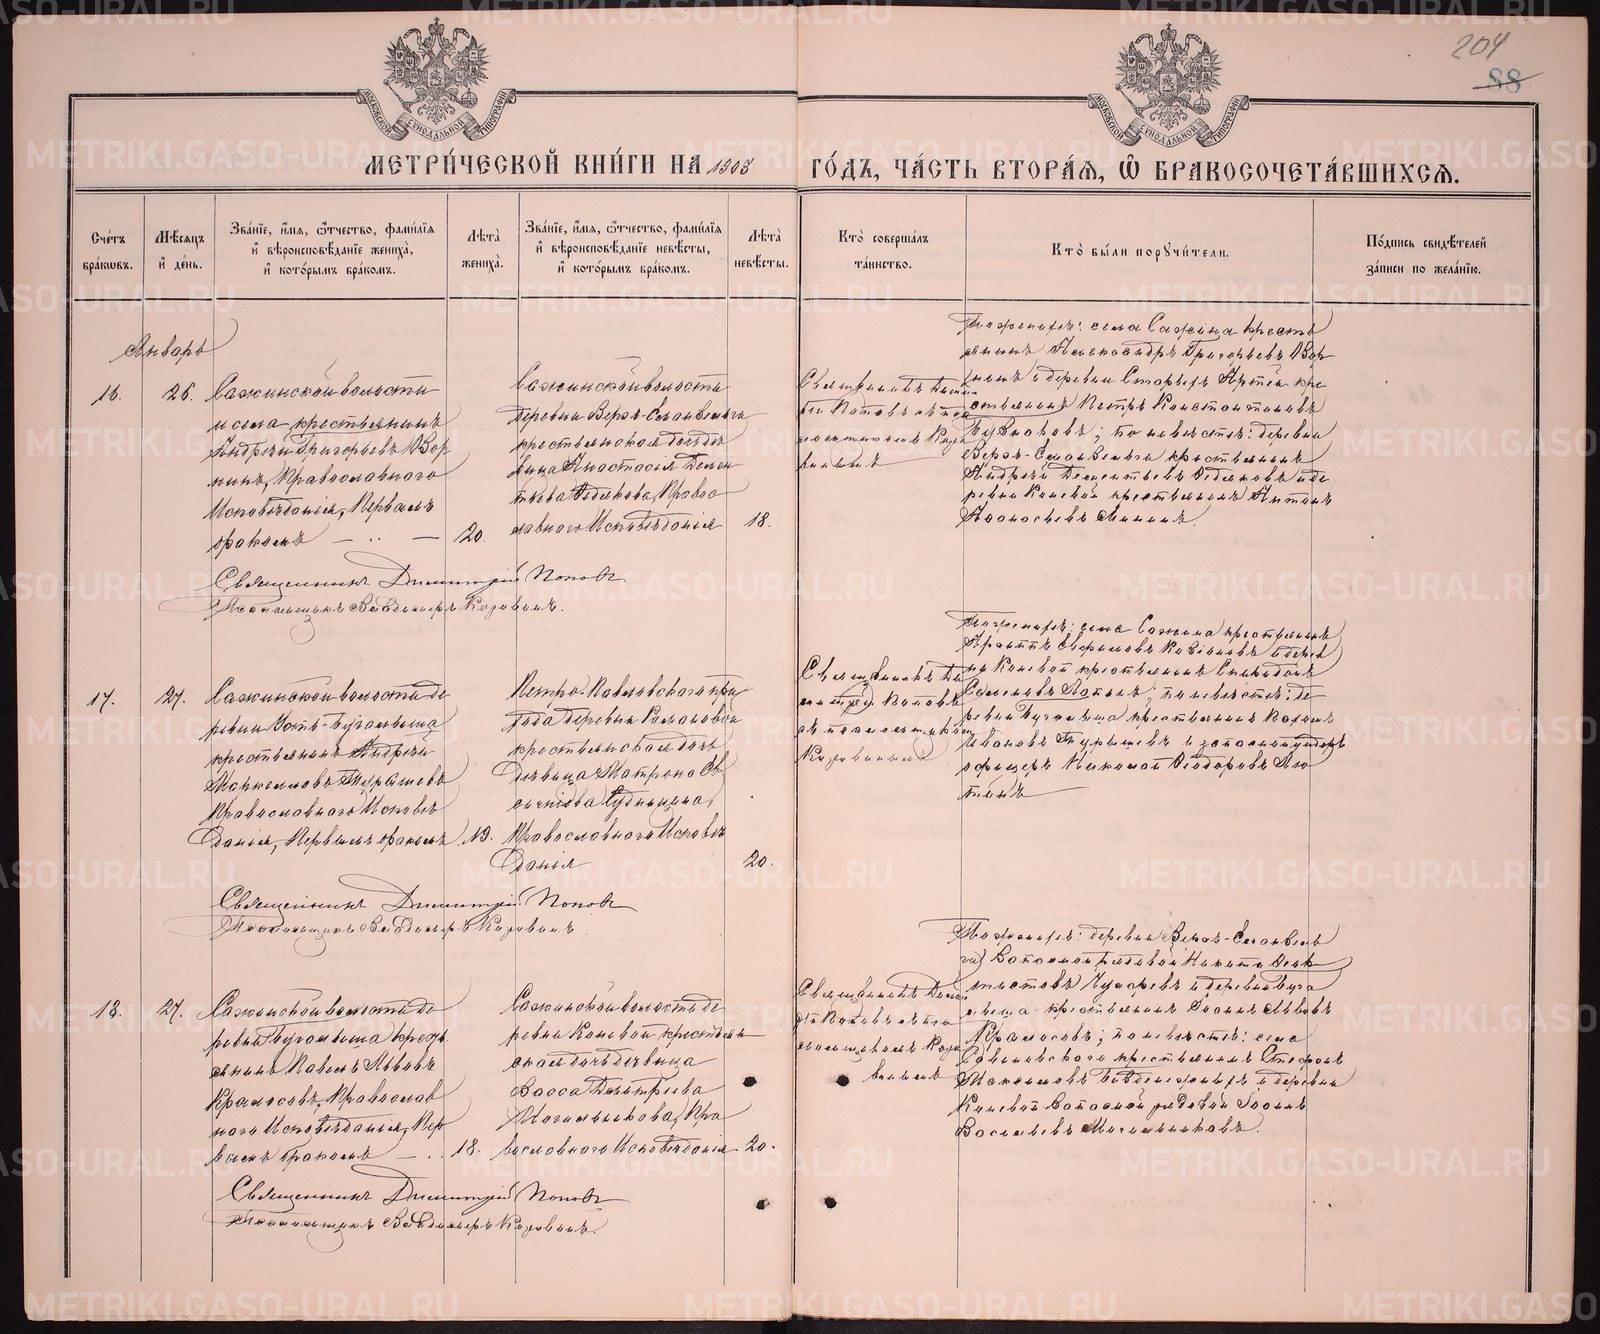 204
88
МОСКОВСКОЙ СѴНОДАЛЬНОЙ ТИПОГРАФІИ
МОСКОВСКОЙ СѴНОДАЛЬНОЙ ТИПОГРАФІИ
МЕТРИ́ЧЕСКОЙ КНИ́ГИ НА 1903 ГО́ДЪ, ЧА́СТЬ ВТОРА́Ѧ, Ѽ БРАКОСОЧЕТА́ВШИХСѦ.
Сче́тъ бра́кѡвъ.
Мѣ́сѧцъ и҆ де́нь.
Зва́нїе, и҆́мѧ, ѻ҆́тчество, фами́лїѧ и҆ вѣроисповѣ́данїе жениха̀, и҆ кото́рымъ бра́комъ.
Лѣ́та̀ жениха̀.
Зва́нїе, и҆́мѧ, ѻ҆́тчество, фами́лїѧ и҆ вѣроисповѣ́данїе невѣ́сты, и҆ кото́рымъ бра́комъ.
Лѣ́та̀ невѣ́сты.
Кто̀ соверша́лъ та́инство.
Кто̀ бы́ли порꙋчи́тели.
По́дпись свидѣ́телей за́писи по жела́нїю.
Январь
16.
26.
Сажинской волости
и села, крестьянинъ
Андрей Григорьевъ Вор
нинъ, Православнаго
Исповѣданія, Первымъ
бракомъ
20.
Сажинской волости
деревни Верхъ-
крестьянская дочь дѣ
вица Анастасія Демен
тьева Ведякова, Право
славнаго Исповѣданія
18.
Священникъ Дими
трій Поповъ съ пса
ломщикомъ Каро
винымъ
По женихѣ: села Сажина кресть
янинъ Александръ Григорьевъ Вор
нинъ и деревни Старыхъ Артей кре
стьянинъ Петръ Константиновъ
по невѣстѣ: деревни
крестьянинъ
Андрей Дементьевъ Ведяковъ и де
ревни Каневой крестьянинъ Антонъ
Афонасьевъ
Священникъ Димитрій Поповъ
Псаломщикъ Владимиръ Каровинъ.
17.
27.
Сажинской волости де
ревни Усть-Бугалыша
крестьянинъ Андрей
Маркелловъ Турышевъ
Православнаго Исповѣ
данія, Первымъ бракомъ
19.
Петро-Павловскаго при
хода деревни Романовой
крестьянская дочь
дѣвица Матрона
Православнаго Исповѣ
данія
20.
Священникъ Ди
митрій Поповъ
съ псаломщикомъ
Каровинымъ
По женихѣ: села Сажина крестьянинъ
Евфимовъ и дерев
ни Каневой крестьянинъ Спиридонъ
Семеновъ по невѣстѣ: де
ревни Бугалыша крестьянинъ
Ивановъ Турышевъ и запасной унтеръ
офицеръ Николай Ѳеодоровъ
Священникъ Димитрій Поповъ
Псаломщикъ Владимиръ Каровинъ.
18.
27.
Сажинской волости де
ревни Бугалыша крест
янинъ Павелъ Львовъ
Крапосовъ, Православ
наго Исповѣданія, Пер
вымъ бракомъ
18.
Сажинской волости де
ревни Каневой крестьян
ская дочь дѣвица
Васса Дмитріева
Могильникова, Пра
вославнаго Исповѣданія
20.
Священникъ Дими
трій Поповъ съ пса
ломщикомъ Каро
винымъ
По женихѣ: деревни Верхъ-
Запасной рядовой Никита
и деревни Буга
лыша крестьянинъ Іоаннъ Львовъ
Крапосовъ; по невѣстѣ: села
Савиновскаго крестьянинъ Стефанъ
Максимовъ и деревни
Каневой Запасной рядовой Іоаннъ
Васильевъ Могильниковъ.
Священникъ Димитрій Поповъ
Псаломщикъ Владимиръ Каровинъ.
METRIKI.GASO-URAL.RU